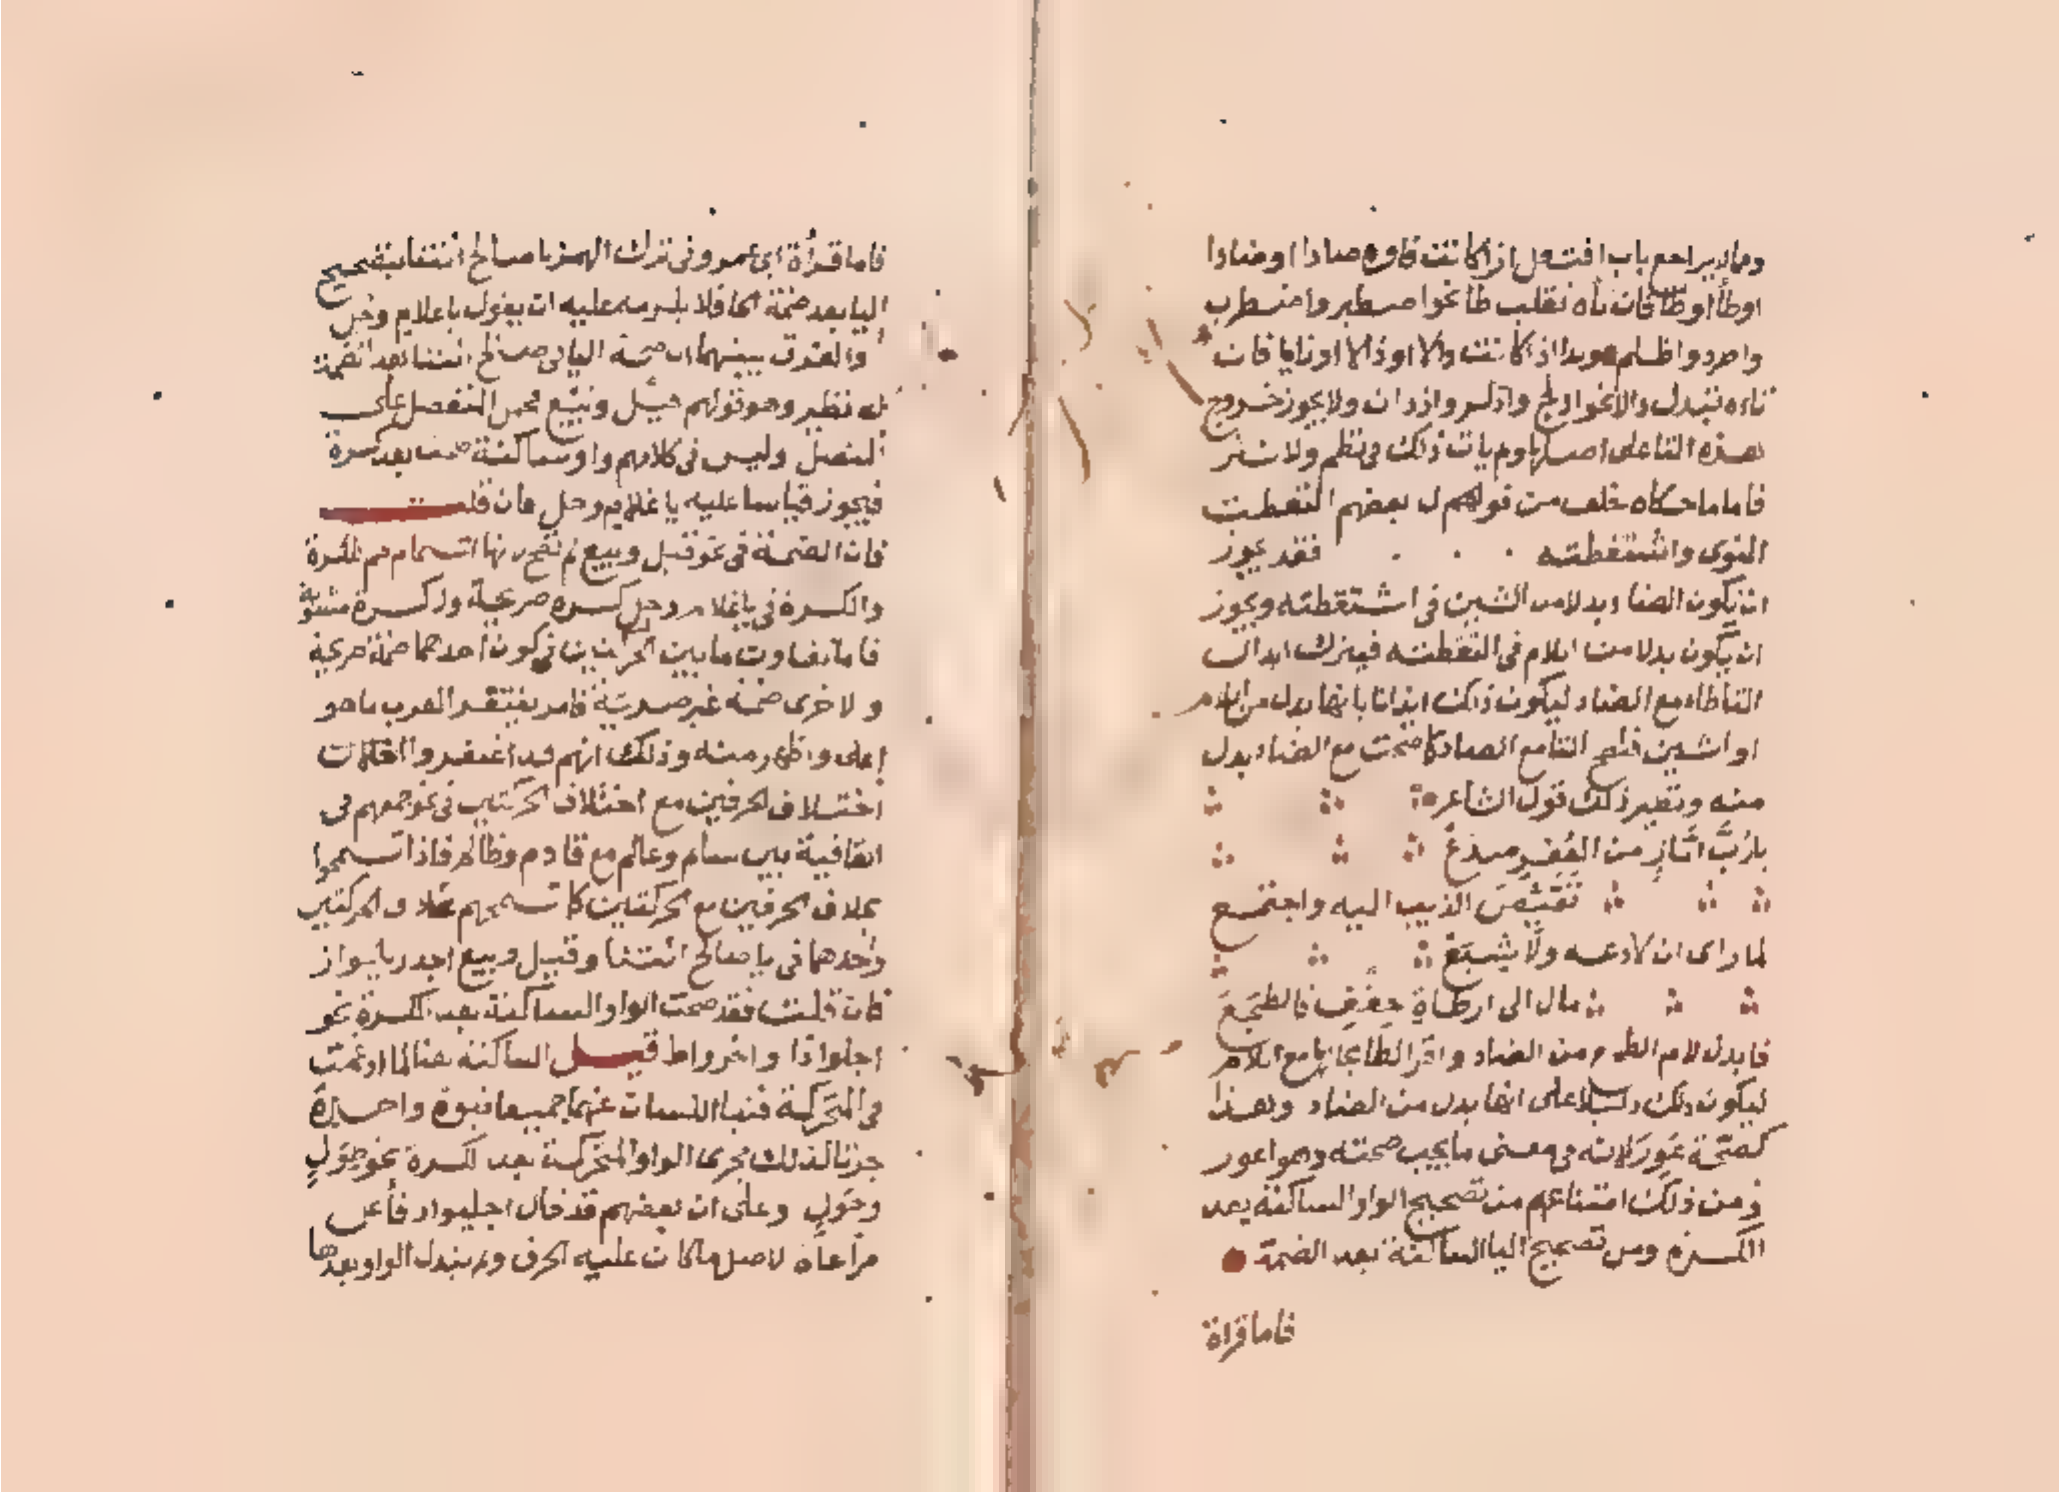 وما لا يراجع باب افتعل اذا كانت فاوه صادا او ضادا
او طاا او ظاا فان تاه تقلب طا نحو اصطبر واضطرب
واطرد واظلم وبدا اذ كانت دالا او ذالا او زايا فان
تاءه تبدل دالا نحو ادلج واذكر وازدان ولا يجوز خروج
هذه التا على اصلها ولم يات ذلك في نظم ولا نثر
فاما ما حكاه خلف من قولهم بعضهم التقطت
النوى واشتقطته فقد يجوز
ان تكون الضاد بدلا من الشين في اشتقطته ويجوز
ان يكون بدلا من اللام في التقطته فيترك ابدال
التا طاء مع الضاد ليكون ذلك ايذانا بانها بدل من اللام
او الشين فتصح التا مع الضاد كما صحت مع الضاد بدل
منه ونظير ذلك قول الشاعر
يا رب اباز من العفر صدع
تقبض الذيب اليه واجتمع
لما راى ان لا دعه ولا شبع
مال الى ارطاة حقف فالطجع
فابدل لام الطجع من الضاد واقر الطا بحالها مع اللام
ليكون ذلك دليلا على انها بدل من الضاد وهذا
كصحة عور لانه في معنى ما يجب صحته وهو اعور
ومن ذلك امتناعهم من تصحيح الواو الساكنة بعد
الكسرة ومن تصحيح اليا الساكنة بعد الضمة
فاما قراة
فاما قرأة ابي عمرو في ترك الهمز يا صالح ائتنا بتصحيح
اليا بعد ضمة الحا فلا يلزمه عليه ان يقول يا غلام وجل
والفرق بينهما ان صحة اليا في صالح ائتنا بعد الضمة
له نظير وهو قولهم قيل وبيع فحمل المنفصل على
المتصل وليس في كلامهم واو ساكنة صحت بعد كسرة
فيجوز قياسا عليه يا غلام وجل فان قلت
فان الضمة في نحو قيل وبيع لم تصح لانها اشمام ضم للكسرة
والكسرة في يا غلام وجل كسرة صريحة وكسرة مشوبة
فما تفاوت ما بين الحركتين ان تكون احدهما ضمة صريحة
والاخرى ضمة غير صريحة فامر يغتفر العرب ما هو
اعلى واظهر منه وذلك انهم قد اغتفروا
اختلاف الحرفين مع اختلاف الحركتين في نحو جمعهم في
القافية بين سالم وعالم مع قادم وظالم فاذا تسمحوا
بخلاف الحرفين مع الحركتين كان تسمحهم بخلاف الحركتين
وحدهما في يا صالح ائتنا وقيل وبيع اجدر بالجواز
فان قلت فقد صحت الواو الساكنة بعد الكسرة نحو
اجلواذا واخرواط قيل الساكنة هنا لما ادغمت
في المتحركة فنبا اللسان عنهما جميعا نبوة واحدة
جرتا لذلك مجرى الواو المتحركة بعد الكسرة نحو طول
وحول وعلى ان بعضهم قد قال اجليواد فاعل
مراعاه لاصل ما كان عليه الحرف ولم يبدل الواو بعدها